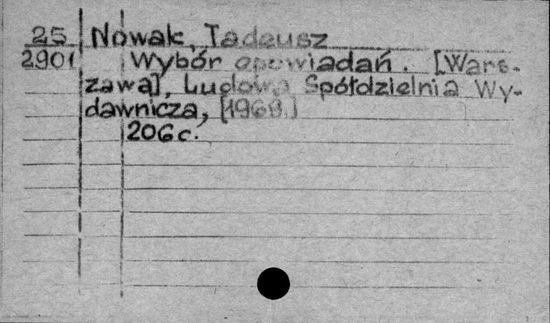 25 Nowak, Tadeusz
2901 Wybór opowiadań. [Wars-
zawa], Ludowa Spółdzielnia Wy-
dawnicza, [1969.]
206 c.